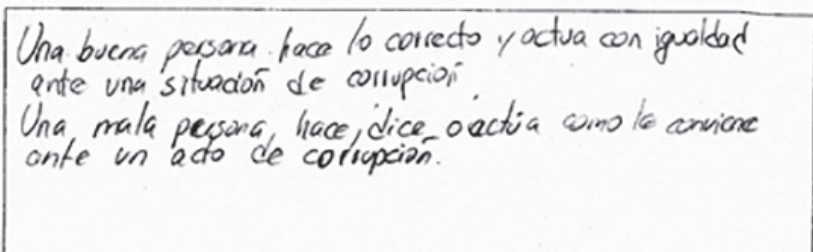 Una buena persona hace lo correcto y actua con igualdad
ante una situación de corrupción
Una mala persona, hace, dice o actúa como le conviene
ante un acto de corrupción.